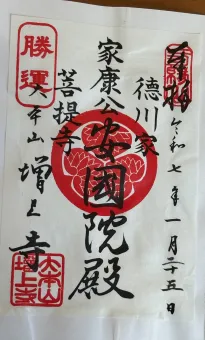 奉拝
令和七年一月二十五日
徳川家
家康公安國院殿
菩提寺
勝運
大本山
増上寺
大本山
増上寺